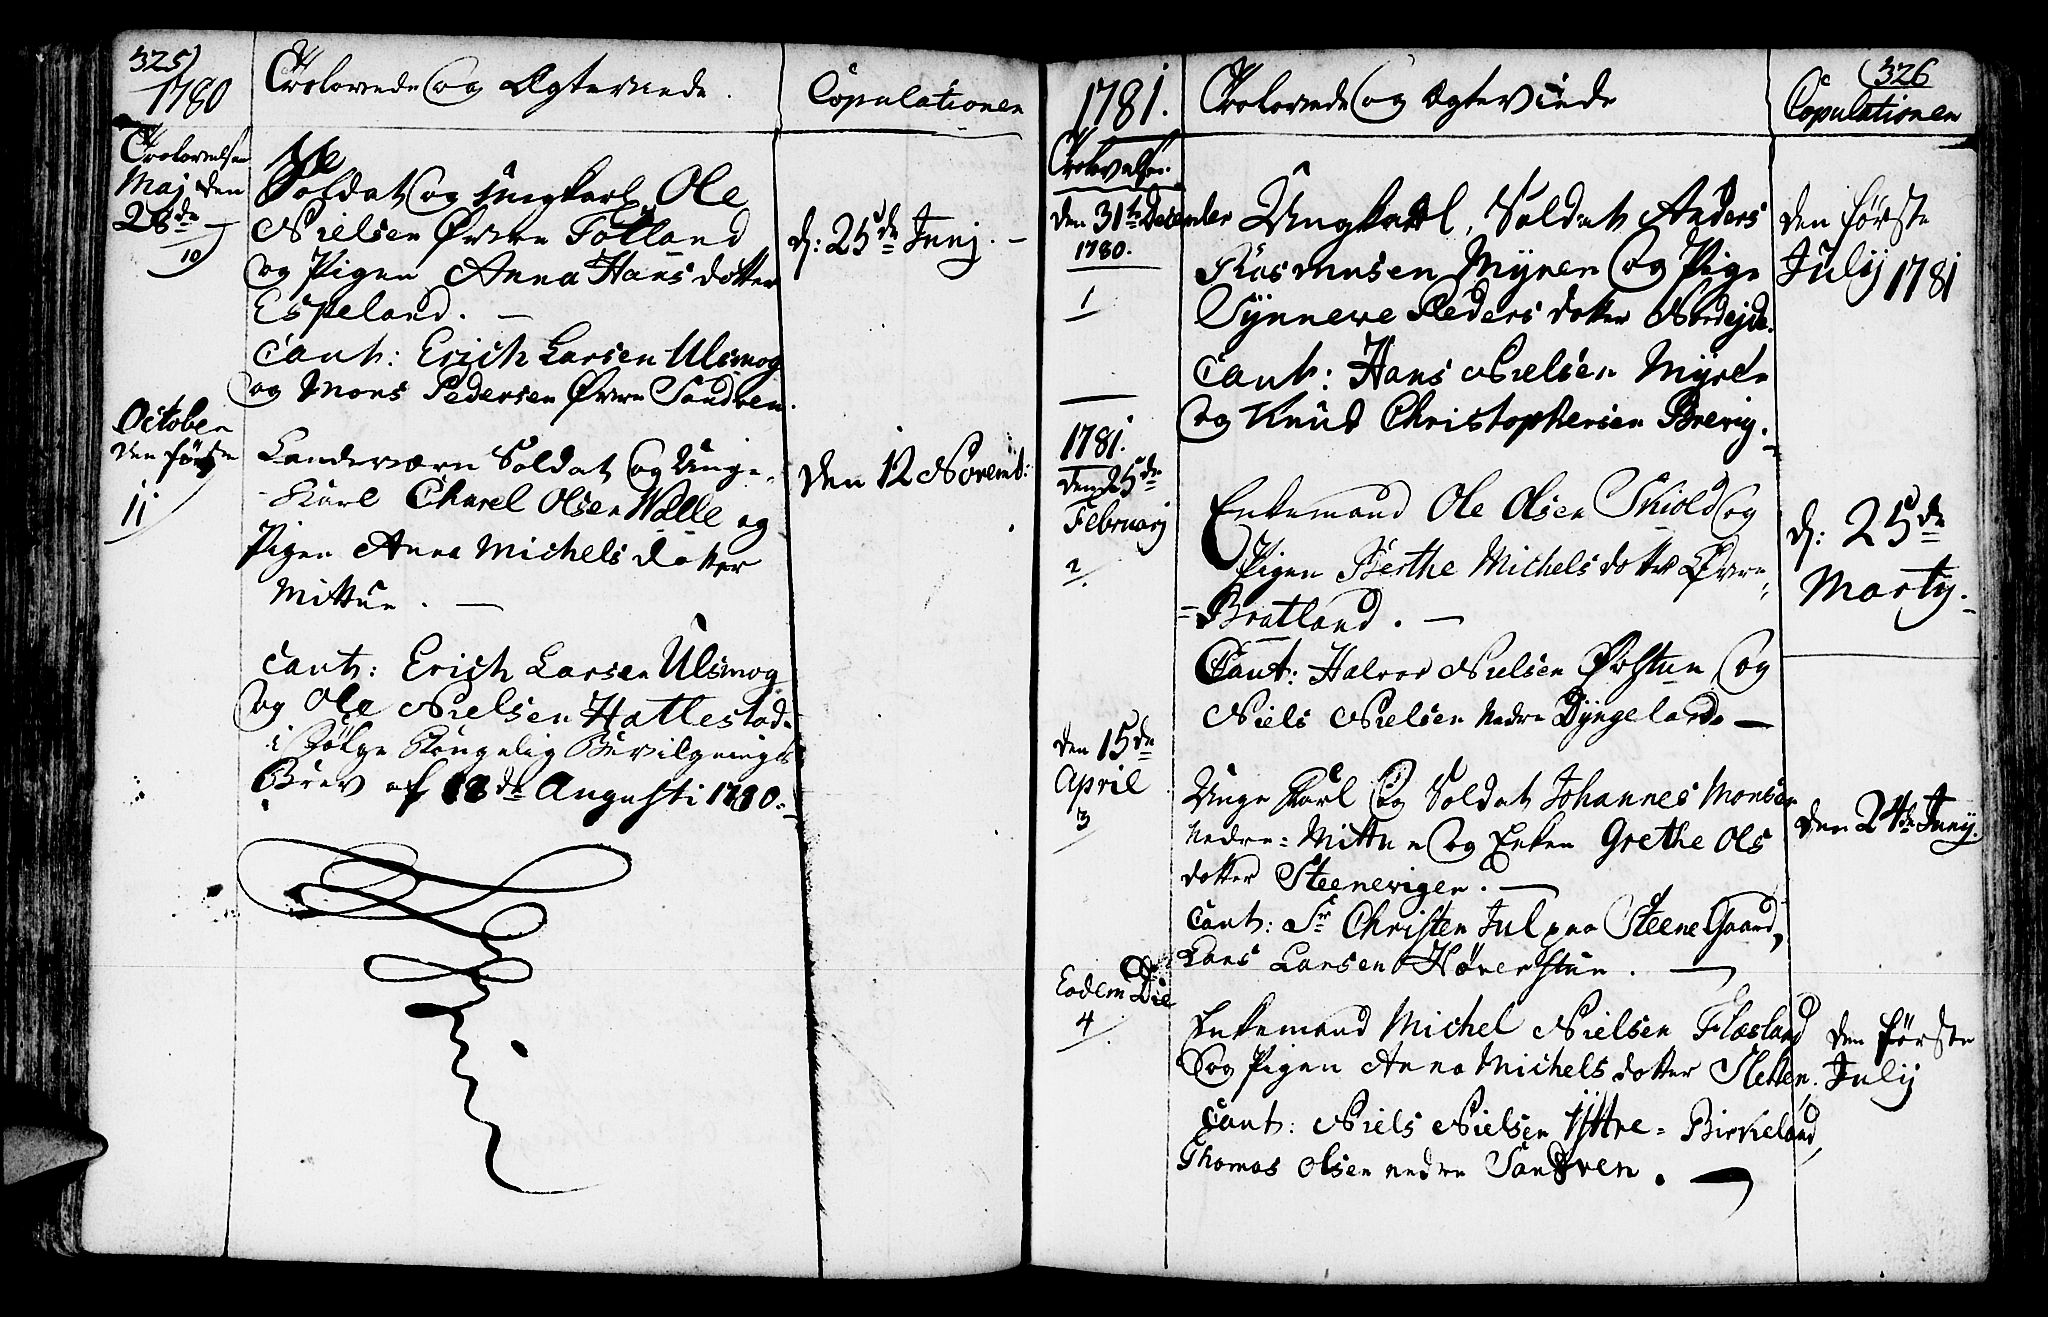 325)
1780
Trolovede og Ægteviede.
Copulationen
Trolovelsen
Maj den
28de
10
Soldat og Ungkarl Ole
Nielsen Øvre Totland
og Pigen Anna Hans dotter
Espeland.
Caut: Erich Larsen Ulsmog
og Mons Pedersen Øvre Sandven.
d: 25de Junj.
October
den første
11
Landeværn Soldat og Unge-
Karl Charel Olsen Walle og
Pigen Anna Michels dotter
Mittun.
Caut: Erich Larsen Ulsmog
og Ole Nielsen Hatlestad.
i Følge Kongelig Bevilgnings
Brev af 18de Augusti 1780.
den 12 Novemb:
326
1781.
Trolovede og Ægteviede
Copulationen
Trolovelsen.
den 31te December
1780.
1
Ungkarl, Soldat Anders
Rasmusen Myren og Pige
Synnewe Peders dotter Nordejde.
Caut: Hans Nielsen Myren
og Knud Christophersen Brevig.
den første
Julij 1781
1781.
den 25de
Februarj
2
Enkemand Ole Olsen Skiold og
Pigen Berthe Michels dotter Øvre
Bratland.
Caut: Halvor Nielsen Øvstun og
Niels Nielsen Nedre Dyngeland.
d: 25de
Martij.
den 15de
April
3
Unge Karl og Soldat Johannes Monsen
Nedre-Mittun og Enken Grethe Ols
dotter Steenevigen.
Caut: Sr Christen Jul paa Steene Gaard,
Lars Larsen Høverstun.
den 24de Junij.
Eodem Die
4
Enkemand Michel Nielsen Flæsland
og Pigen Anna Michels dotter Sletten.
Caut: Niels Nielsen Ittre-Birkeland,
Thomas Olsen nedre Sandven.
den første
Julij